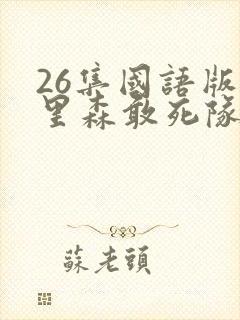 26集國語版
里森敢死隊
蘇老頭